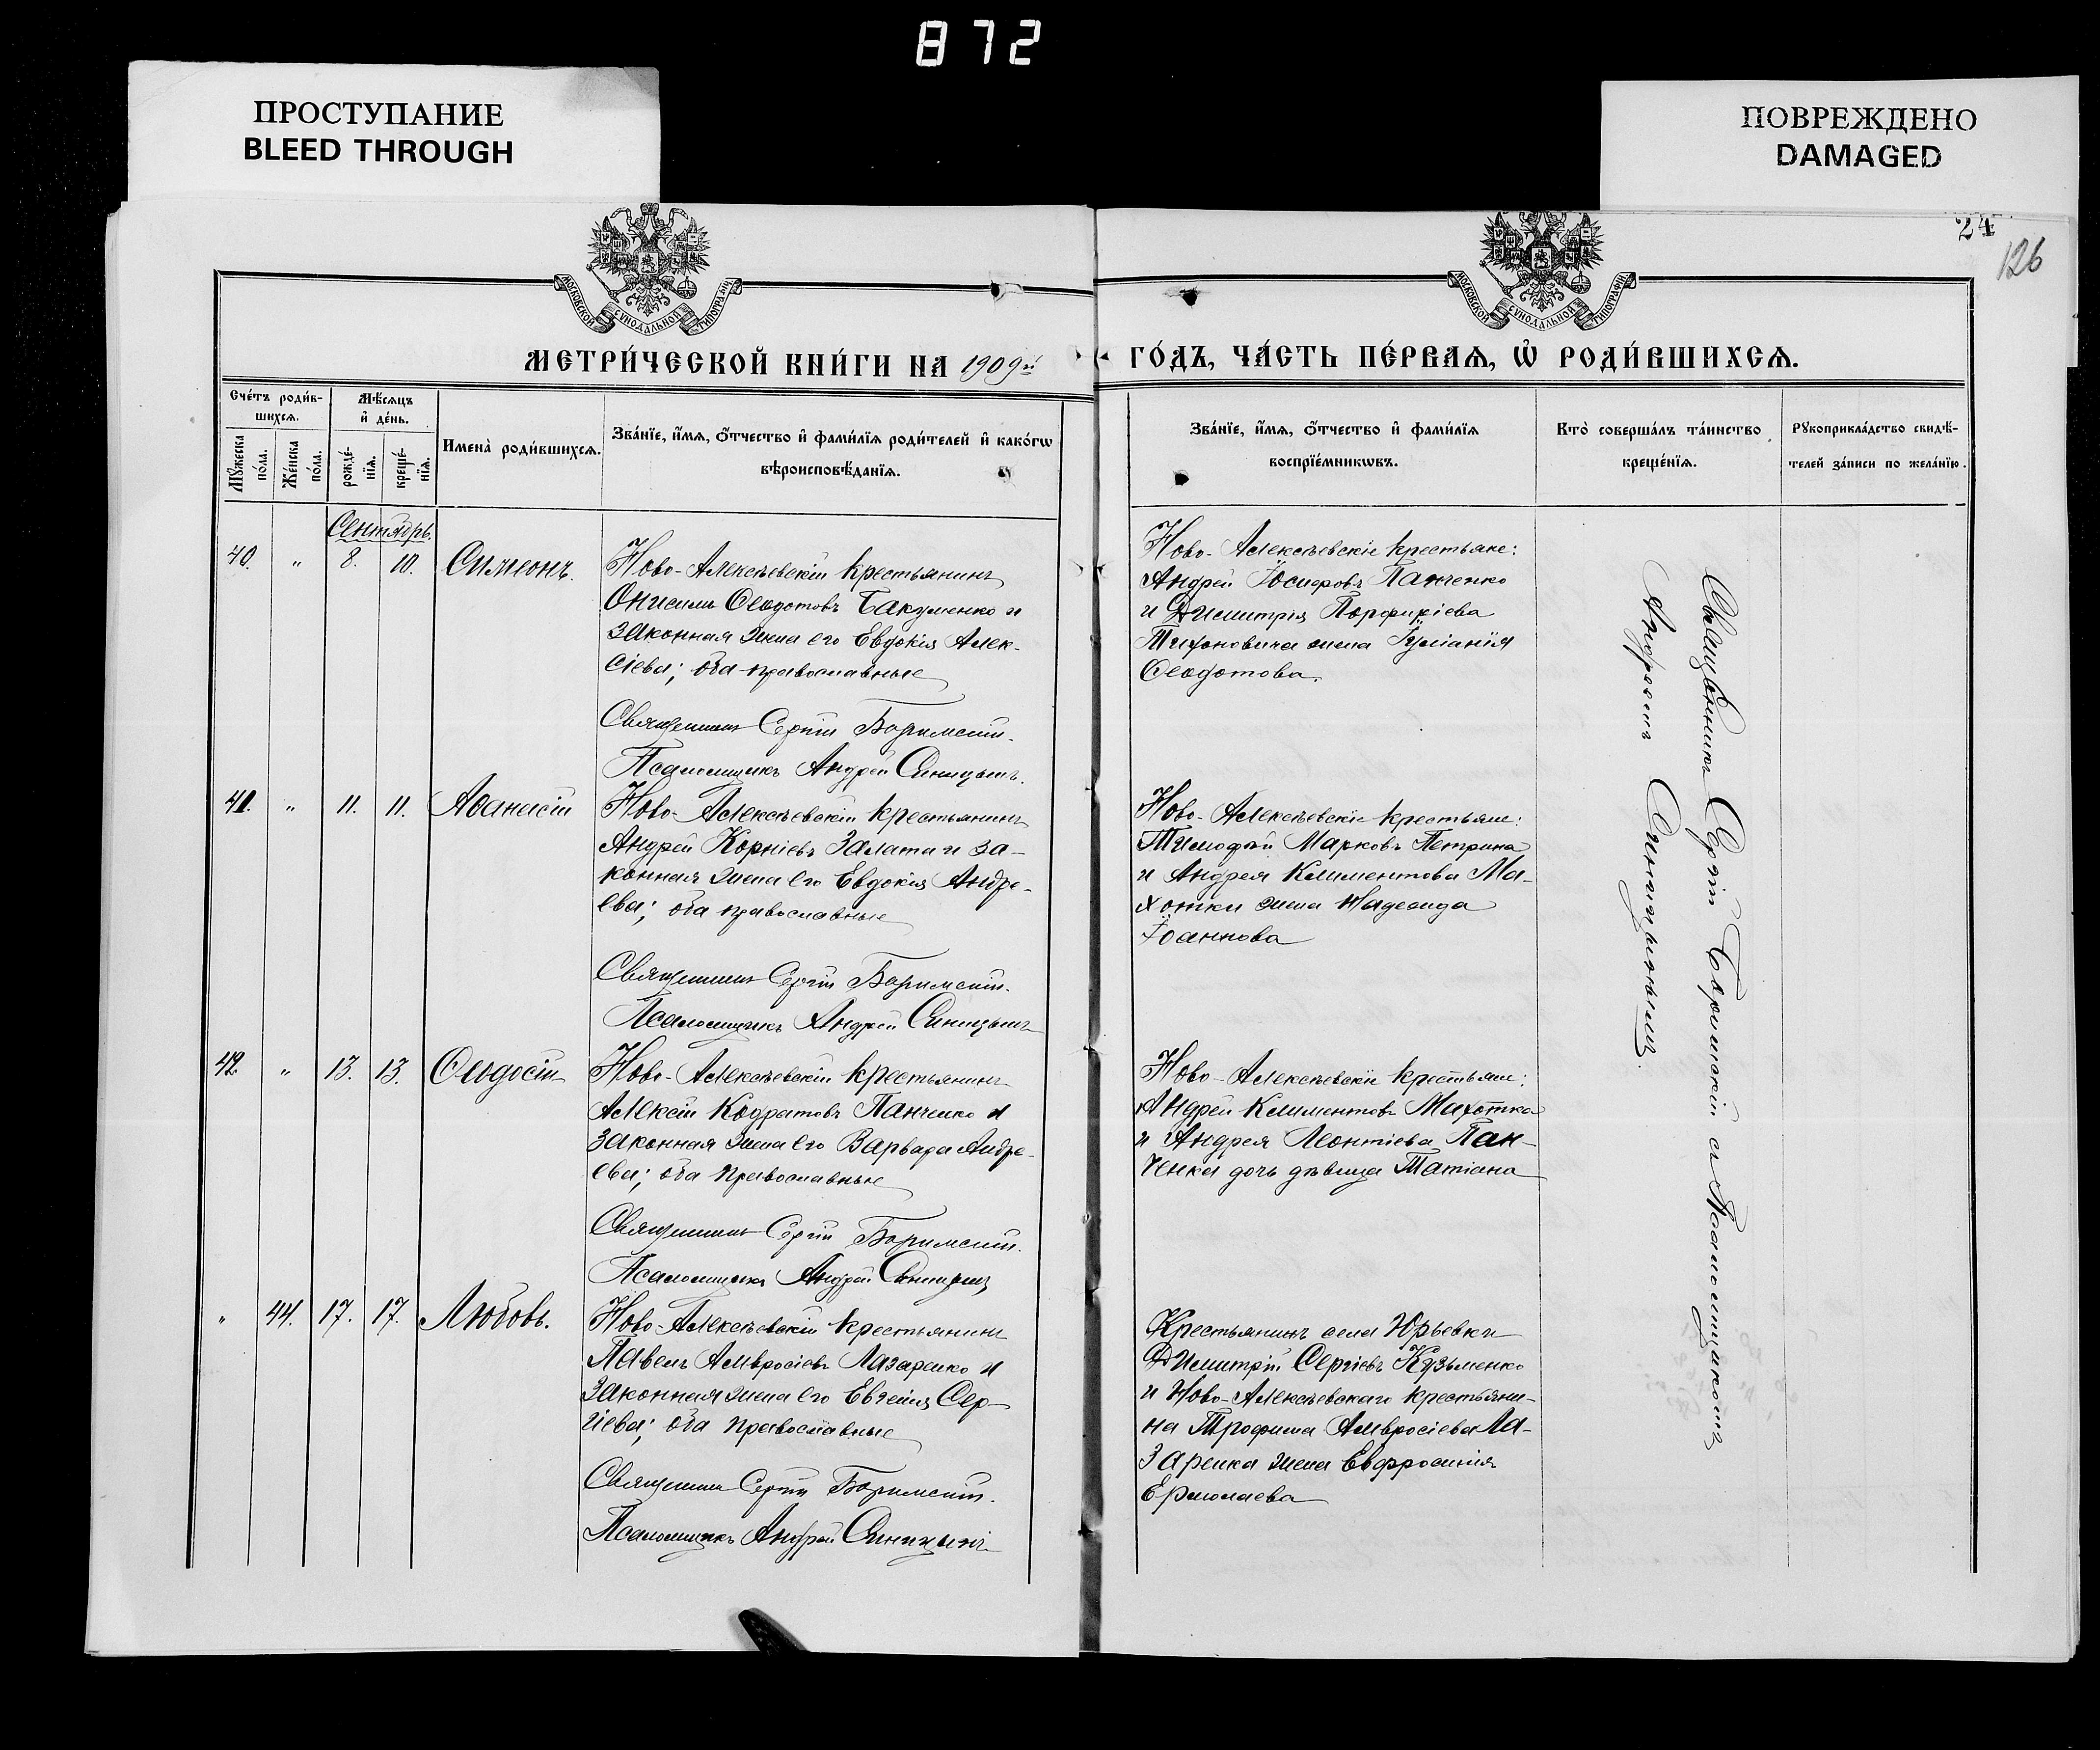 872
ПРОСТУПАНИЕ
BLEED THROUGH
ПОВРЕЖДЕНО
DAMAGED
24
126
МОСКОВСКОЙ СѴНОДАЛЬНОЙ ТИПОГРАФІИ
МОСКОВСКОЙ СѴНОДАЛЬНОЙ ТИПОГРАФІИ
МЕТРИ́ЧЕСКОЙ КНИ́ГИ НА 1909й
ГО́ДЪ, ЧА́СТЬ ПЕ́РВАѦ, Ѡ҆ РОДИ́ВШИХСѦ.
Сче́тъ роди́в-
шихсѧ.
Мѣ́сѧцъ
и҆ де́нь.
Мꙋ́жеска
по́ла.
Же́нска
по́ла.
рожде́-
нїѧ.
креще́-
нїѧ.
Имена̀ роди́вшихсѧ.
Зва́нїе, и҆́мѧ, ѻ҆́тчество и҆ фами́лїѧ роди́телей и҆ како́гѡ
вѣроисповѣ́данїѧ.
Зва́нїе, и҆́мѧ, ѻ҆́тчество и҆ фами́лїѧ
воспрїе́мникѡвъ.
Кто̀ соверша́лъ та́инство
креще́нїѧ.
Рꙋкоприкла́дство свидѣ́-
телей за́писи по жела́нїю.
Сентябрь.
40. " 8. 10. Симеонъ.
Ново-Алексѣевскій крестьянинъ
Онисимъ Ѳеодотовъ Бакуменко и
законная жена его Евдокія Алек-
сіева; оба православные
Священникъ Сергій Боримскій.
Псаломщикъ Андрей Синицынъ.
Ново-Алексѣевскіе крестьяне:
Андрей Іосифовъ Панченко
и Димитрія Порфиріева
Тихоновича жена Іуліанія
Ѳеодотова.
41. " 11. 11. Аѳанасій
Ново-Алексѣевскій крестьянинъ
Андрей Корніевъ Залата и за-
конная жена его Евдокія Андре-
ева; оба православные
Священникъ Сергій Боримскій.
Псаломщикъ Андрей Синицынъ
Ново-Алексѣевскіе крестьяне:
Тимофей Марковъ Петрина
и Андрея Климентова Ма-
хотки жена Надежда
Іоаннова
42 " 13. 13. Ѳеодосій
Ново-Алексѣевскій крестьянинъ
Алексій Кодратовъ Панченко и
законная жена его Варвара Андре-
ева; оба православные
Священникъ Сергій Боримскій.
Псаломщикъ Андрей Синицынъ
Ново-Алексѣевскіе крестьяне:
Андрей Климентовъ Махотка
и Андрея Леонтіева Пан-
ченка дочь дѣвица Татіана
" 44. 17. 17. Любовь.
Ново-Алексѣевскій крестьянинъ
Павелъ Амвросіевъ Лазаренко и
законная жена его Евгенія Сер-
гіева; оба православные
Священникъ Сергій Боримскій.
Псаломщикъ Андрей Синицынъ
Крестьянинъ села Юрьевки
Димитрій Сергіевъ Кузьменко
и Ново-Алексѣевскаго крестьяни-
на Трофима Амвросіева Ла-
заренка жена Евфросинія
Ермолаева
Священникъ Сергій Боримскій съ Псаломщикомъ
Андреемъ Синицынымъ.